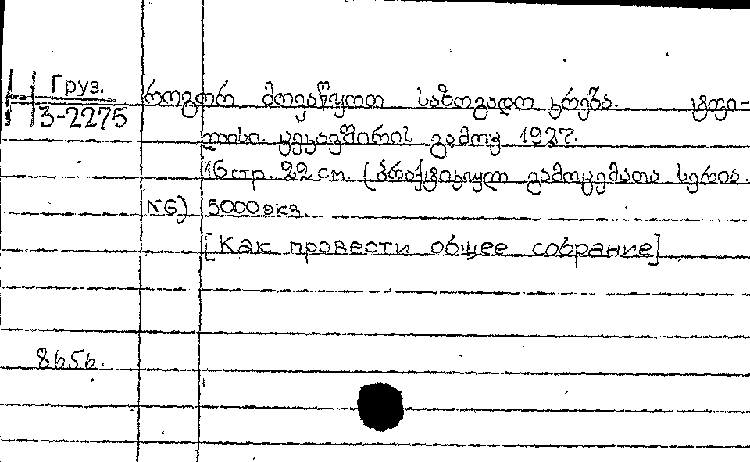 Груз.
3-2275
როგორ მოვაწყოთ საზოგადო კრება. ტფი-
ლისი. ცეკავშირის გამოც. 1927.
16 стр. 22 см. (პრაქტიკულ გამოცემათა სერია.
N6) 5000 экз.
[Как провести общее собрание]